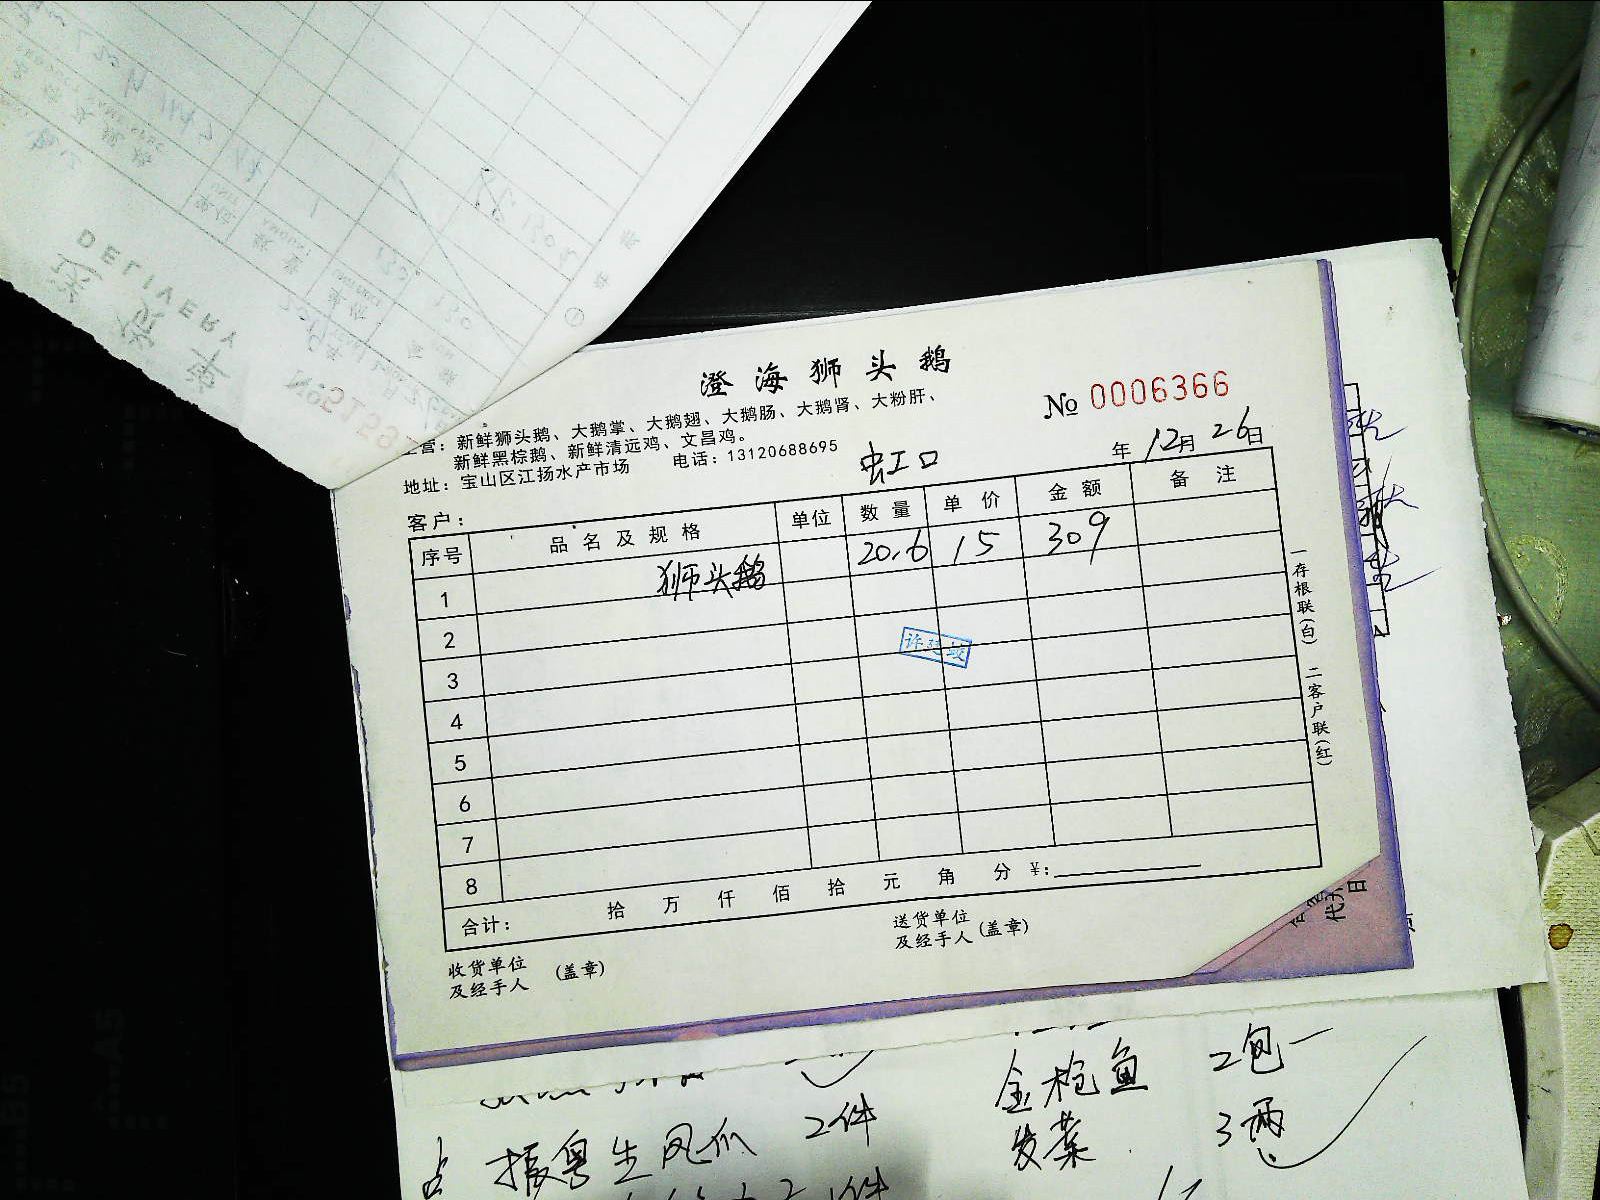 DELIVERY
送货单
澄海狮头鹅
No 0006366
主营：新鲜狮头鹅、大鹅掌、大鹅翅、大鹅肠、大鹅肾、大粉肝、
新鲜黑棕鹅、新鲜清远鸡、文昌鸡。
地址：宝山区江扬水产市场 电话：13120688695
虹口
年 12月 26日
客户：
序号 品名及规格 单位 数量 单价 金额 备注
1 狮头鹅 20.6 15 309
2
3
4
5
6
7
8
合计： 拾 万 仟 佰 拾 元 角 分 ¥：
收货单位及经手人 (盖章)
送货单位及经手人 (盖章)
一存根联(白) 二客户联(红)
金枪鱼 2包
振粤生凤爪 2件
发菜 3两